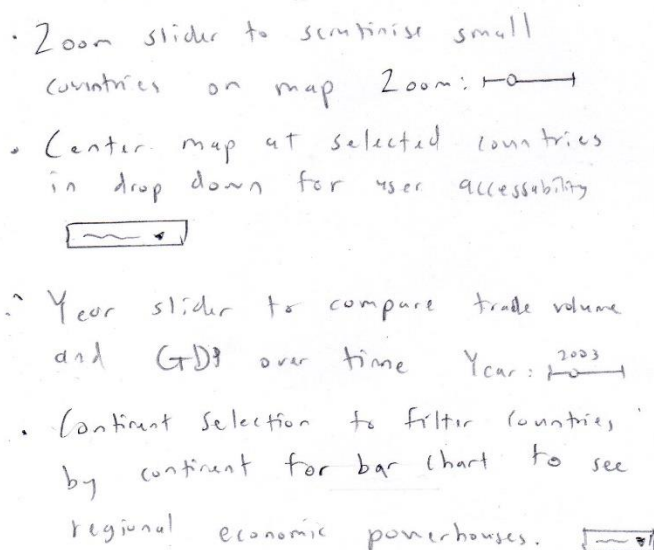 · Zoom slider to scrutinise small
countries on map Zoom:
· Center map at selected countries
in drop down for user accessability
· Year slider to compare trade volume
and GDP over time Year: 2003
· Continent Selection to filter countries
by continent for bar chart to see
regional economic powerhouses.